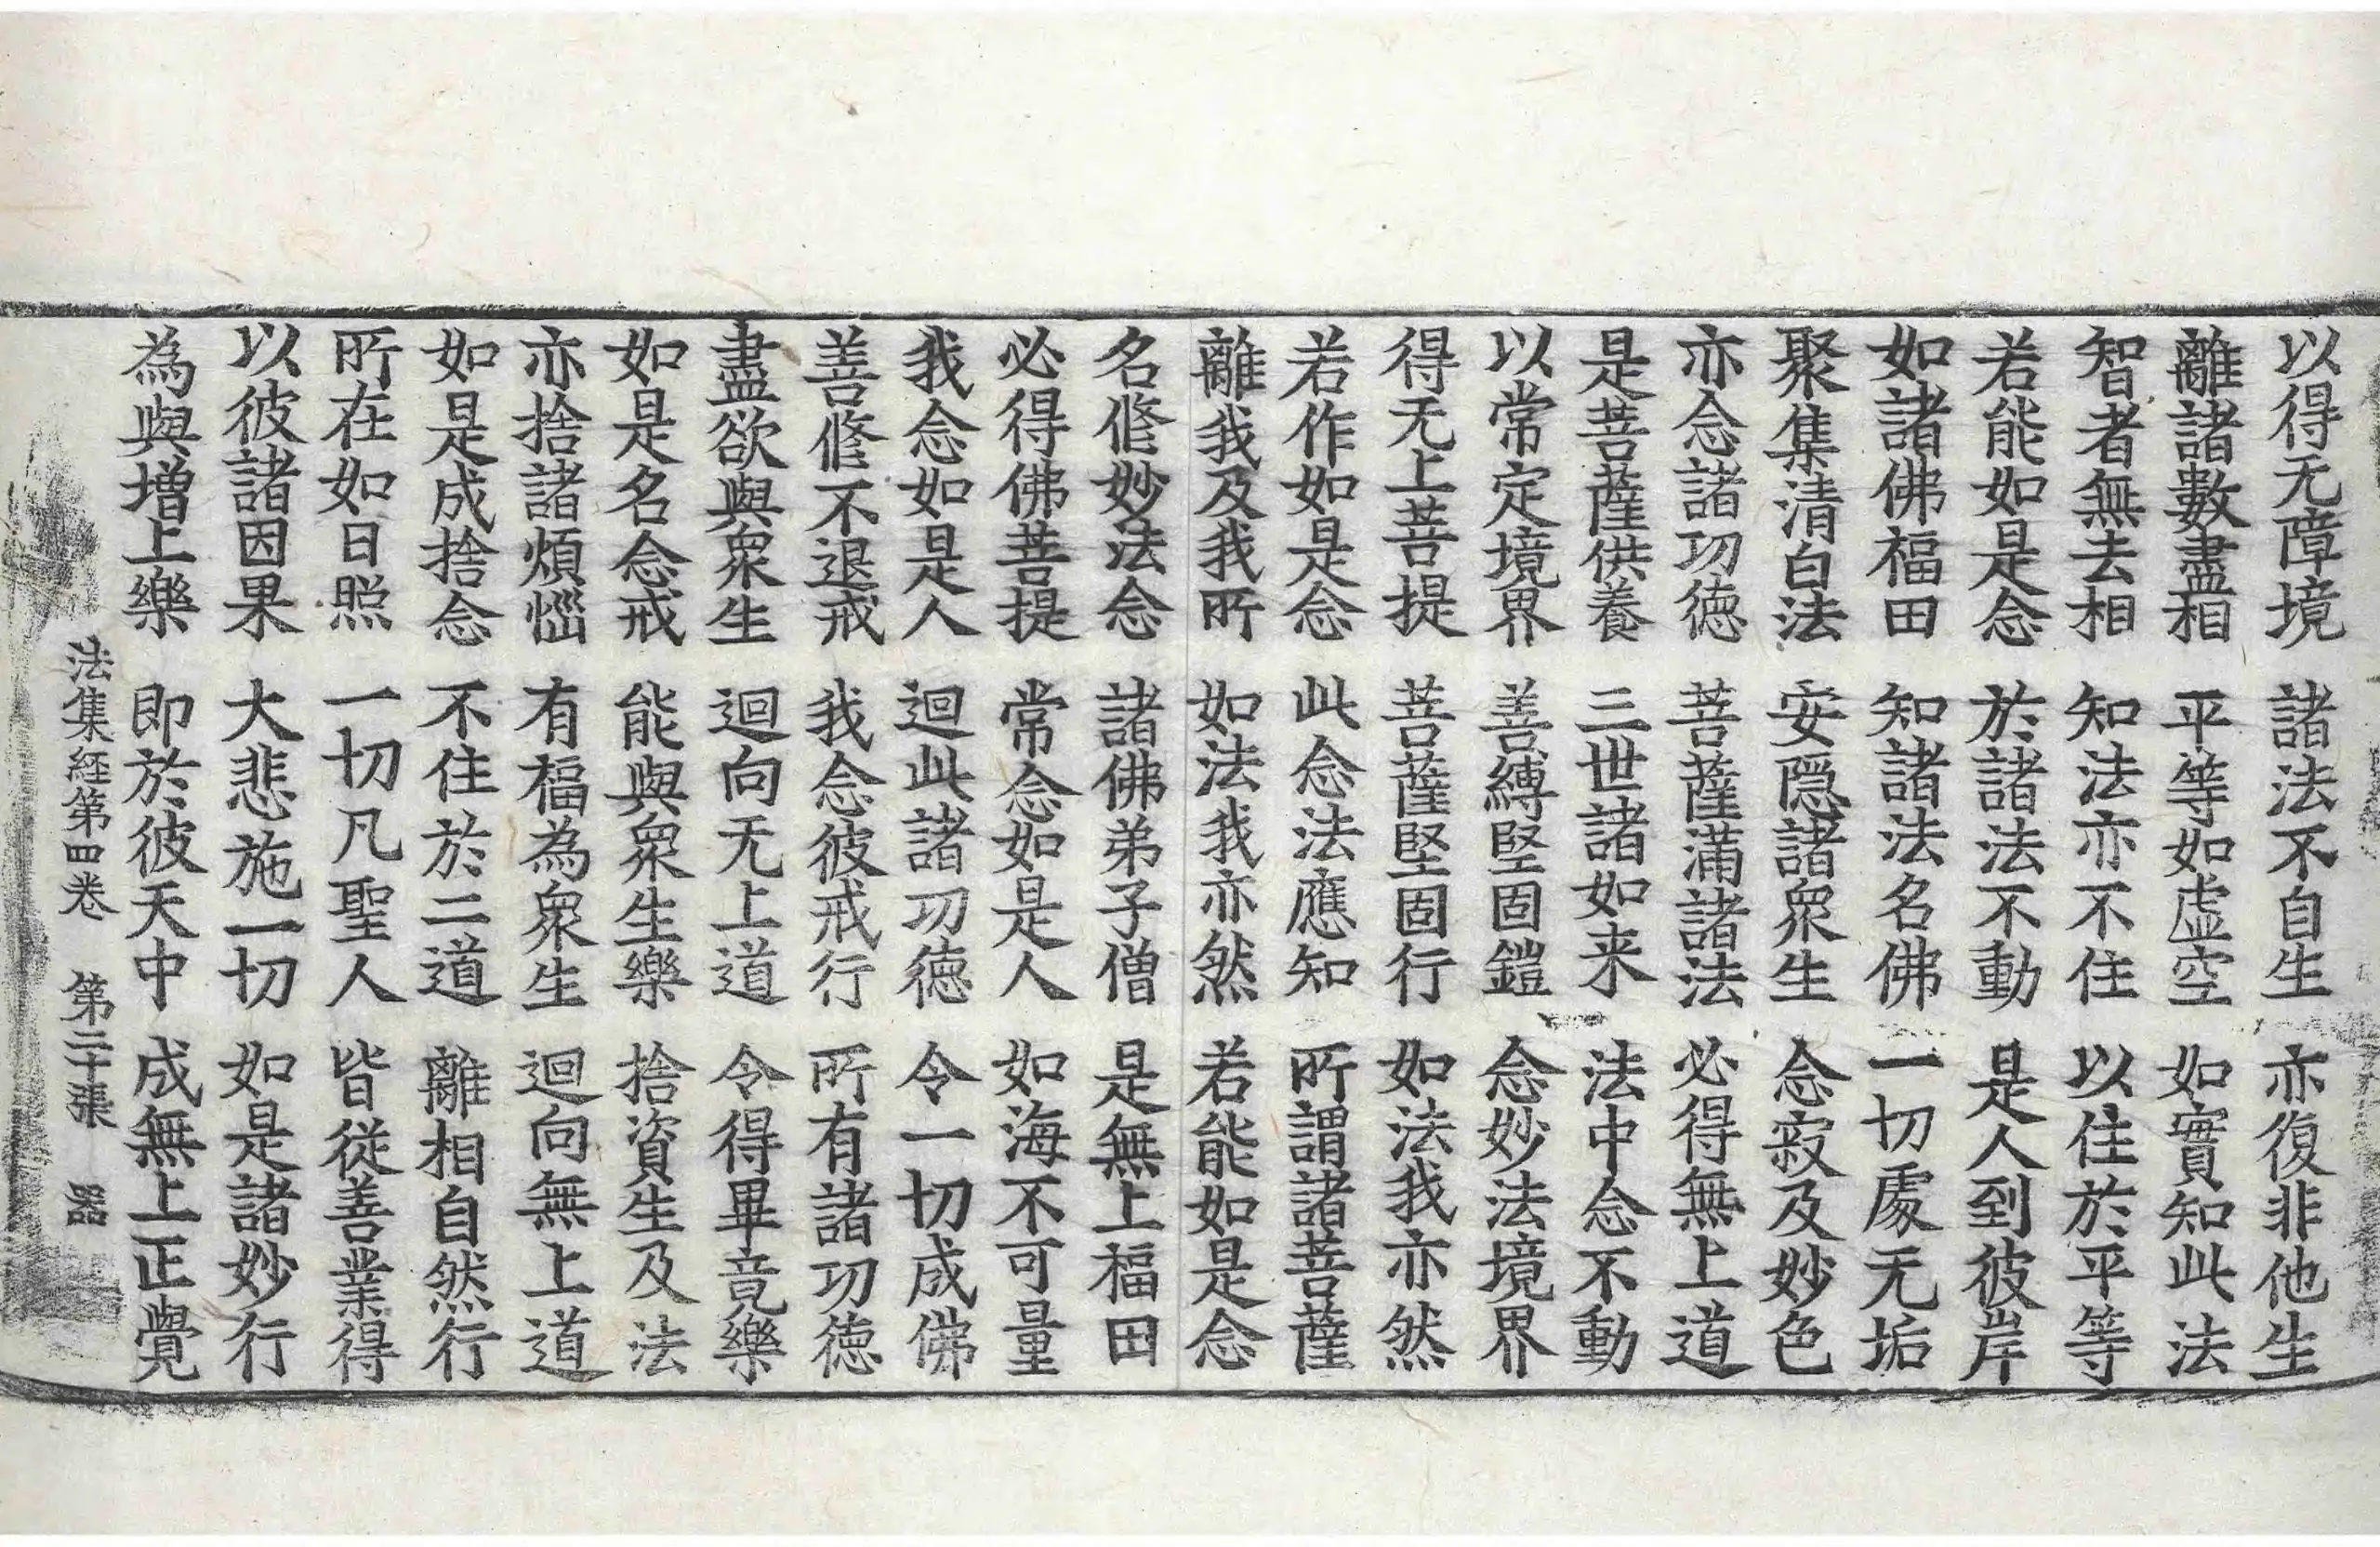 以得无障境 諸法不自生 亦復非他生
離諸數盡相 平等如虛空 如實知此法
智者無去相 知法亦不住 以住於平等
若能如是念 於諸法不動 是人到彼岸
如諸佛福田 知諸法名佛 一切處无垢
聚集清白法 安隱諸衆生 念寂及妙色
亦念諸功徳 菩薩滿諸法 必得無上道
是菩薩供養 三世諸如来 法中念不動
以常定境界 善縛堅固鎧 念妙法境界
得无上菩提 菩薩堅固行 如法我亦然
若作如是念 此念法應知 所謂諸菩薩
離我及我所 如法我亦然 若能如是念
名修妙法念 諸佛弟子僧 是無上福田
必得佛菩提 常念如是人 如海不可量
我念如是人 迴此諸功徳 令一切成佛
善修不退戒 我念彼戒行 所有諸功徳
盡欲與衆生 迴向无上道 令得畢竟樂
如是名念戒 能與衆生樂 捨資生及法
亦捨諸煩惱 有福為衆生 迴向無上道
如是成捨念 不住於二道 離相自然行
所在如日照 一切凡聖人 皆從善業得
以彼諸因果 大悲施一切 如是諸妙行
為與增上樂 即於彼天中 成無上正覺
法集経第四卷 第二十張 器